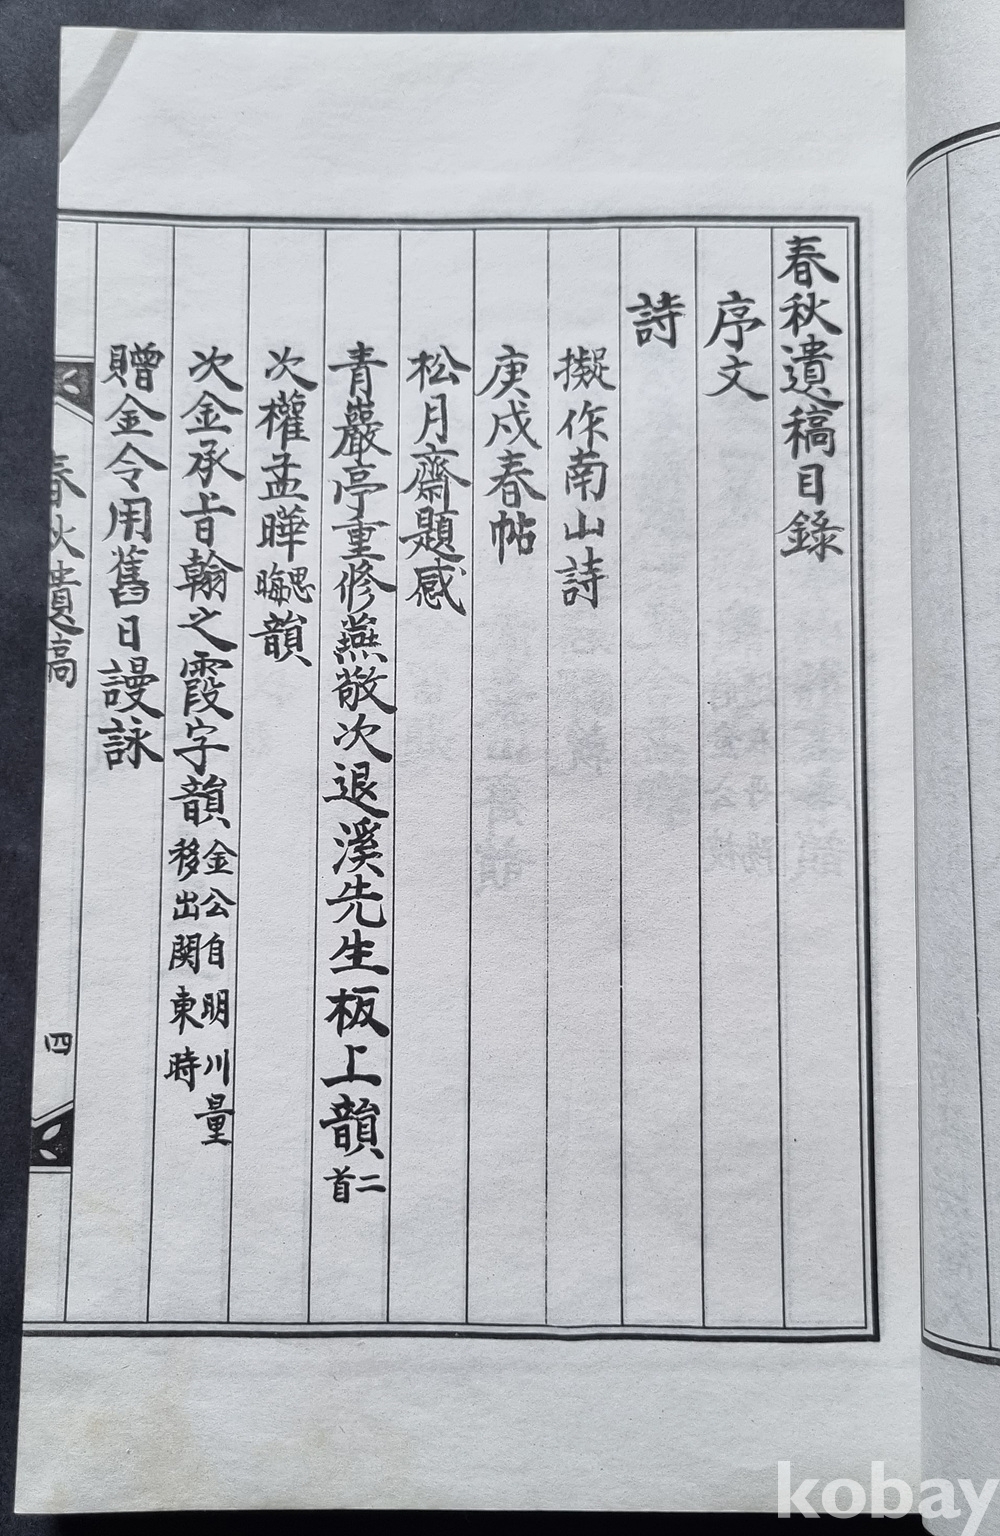 春秋遺稿目錄
序文
詩
擬作南山詩
庚戌春帖
松月齋題感
青巖亭重修燕敬次退溪先生板上韻二首
次權孟曄思晦韻
次金承旨翰之霞字韻金公自明川量移出関東時
贈金令用舊日謾詠
春秋遺稿
四
kobay